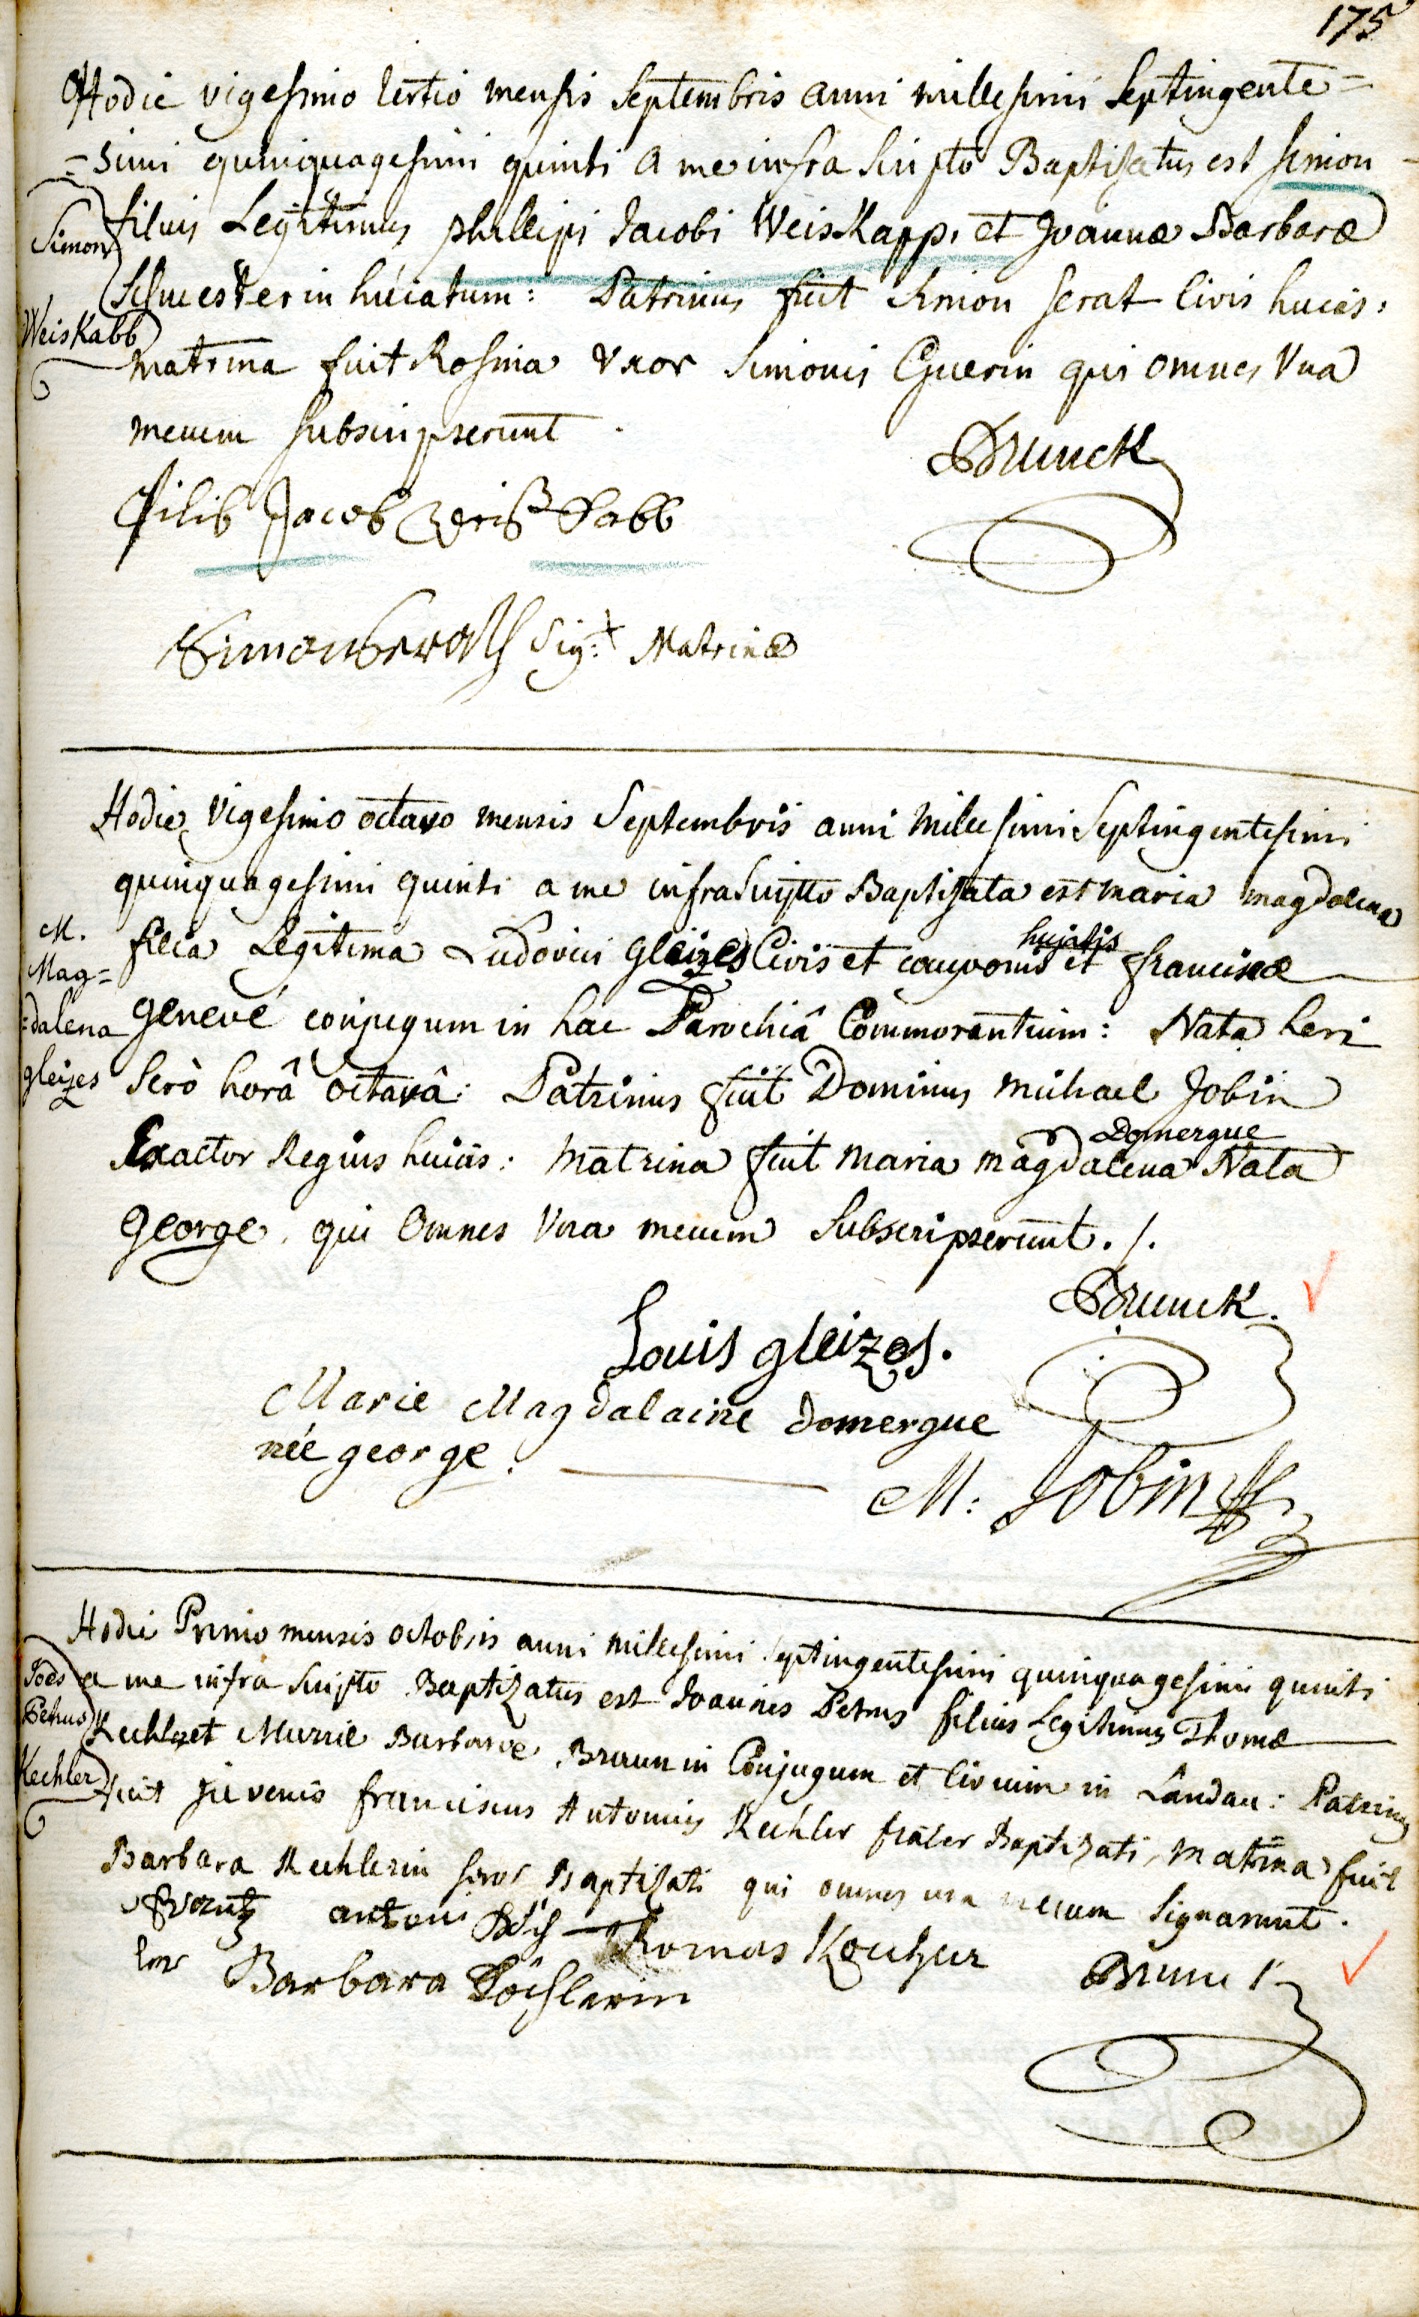 175
Hodie vigesimo tertio mensis Septembris anni millesimi Septingente=
=simi quinquagesimi quinti a me infra scripto Baptisatus est Simon
Simon
filius Legitimus phillipi Jacobi Weiskapp, et Joannæ Barbaræ
Schuesterin huiatum: Patrinus fuit Simon serat Civis huiás:
Weiskabb
matrina fuit Rosina Uxor Simonis Guerin qui omnes Vna
mecum subscripserunt.
Brunck
Filib Jacob Weiß Kabb
Simon Serath Sig: + Matrinæ
Hodie Vigesimo octavo mensis Septembris anni Millesimi Septingentesimi
quinquagesimi quinti a me infra Scripto Baptisata est maria magdalena
M.
Mag=
=dalena
gleizes
hujatis
filia Legitima Ludovici gleizes Civis et cauponis et franciscæ
Genevé conjugum in hac Parochiâ Commorantium: Nata heri
Serò horâ octavâ: Patrinus fuit Dominus Michael Jobin
Domergue
Exactor Regius huiás: matrina fuit maria magdalena Nata
George. qui Omnes Vna mecum Subscripserunt./.
Brunck.
Louis gleizes.
Marie Magdalaine domergue
née george.
M: Jobin
Hodie Primo mensis octobris anni millesimi septingentesimi quinquagesimi quinti
Joës
Petrus
Kechler
a me infra scripto Baptizatus est Joannes Petrus filius Legitimus Thomæ
Kechler et Mariæ Barbaræ Braunin Conjugum et Civium in Landau: Patrinus
fuit juvenis franciscus Antonius Kechler frater Baptizati, matrina fuit
Barbara Kechlerin soror Baptisati qui omnes una mecum signarunt.
frantz antoni Köch-
ler
Thomas Köcher
Brunck
Barbara Köchlerin